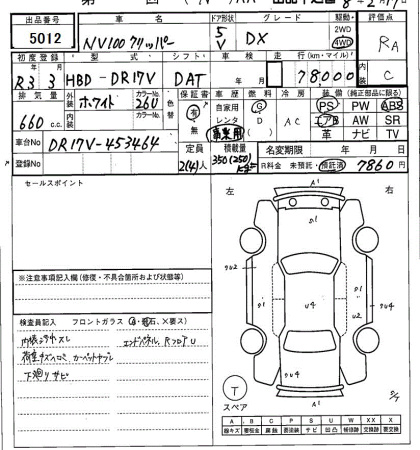 出品番号 車名 ドア形状 グレード 駆動 評価点
5012 NV100クリッパー 5V DX 2WD 4WD RA
初度登録 型式 シフト 車検 走行(km・マイル)
R3 3 HBD-DR17V DAT 78,000 C
排気量 外装 色 カラーNo. 色替 保証書 車歴 燃料 冷房 装備(純正部品に限る)
660 c.c. ホワイト 26U 有 無 自家用 レンタ 事業用 G D AC PS PW ABS
内装 カラーNo. エアB AW SR
革 ナビ TV
車台No DR17V-453464 定員 積載量 名変期限 年 月 日
登録No 2(4)人 350(250)kg R料金 未預託・預託済 7860円
セールスポイント
左 右
A1
※注意事項記入欄(修復・不具合箇所および状態等)
検査員記入 フロントガラス(A・飛石、X要ス)
内張シミヨゴレ エンドパネル、RフロアU
下廻りサビ
U1 U4 U2
A1
T
スペア
A B C P S U W XX X
線キズ 要板金 腐蝕 要塗装 サビ 凹凸 補修跡 交換跡 要交換